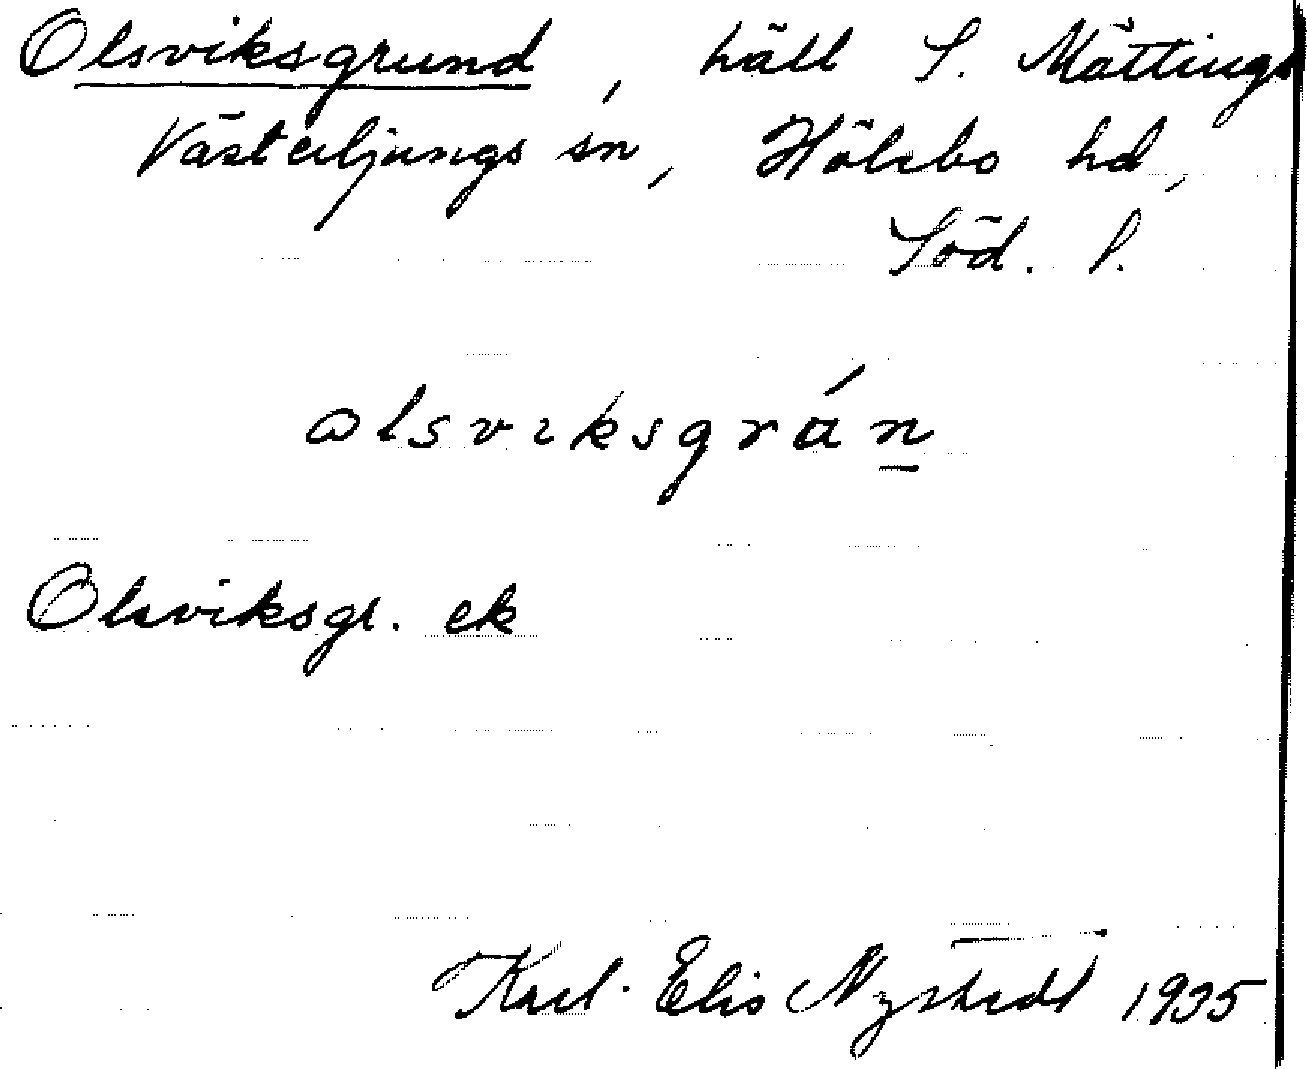 Olsviksgrund, häll S. Mättinge
Västerljungs sn, Hölebo hd,
Söd. l.
olsviksgrán
Olsviksgr. ek
Karl-Elis Nystedt 1935